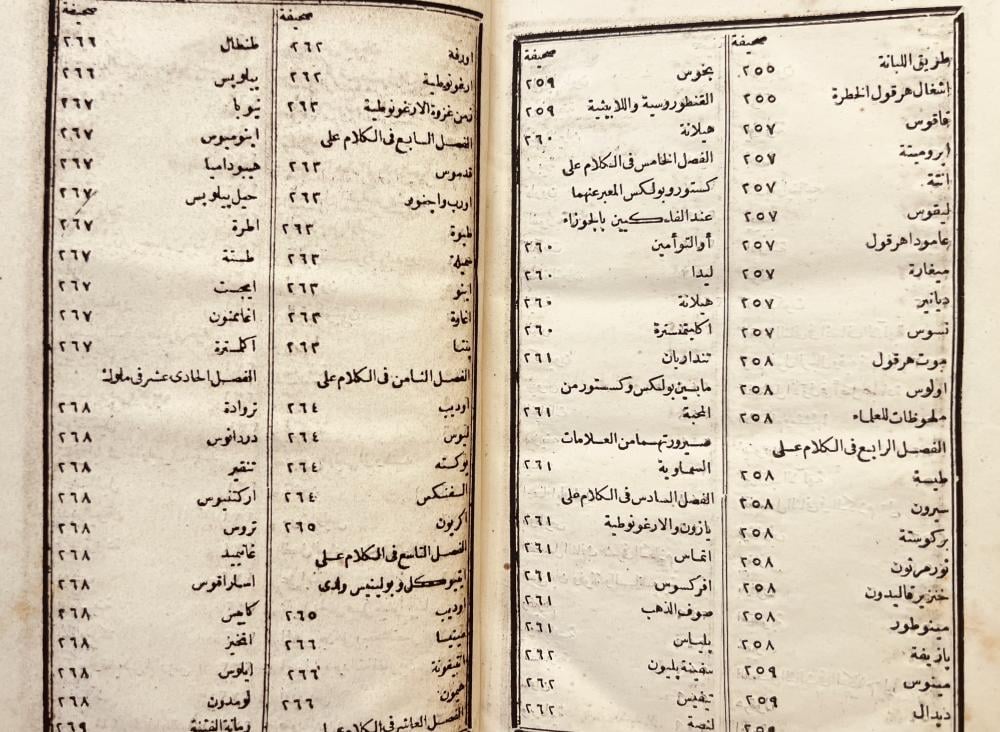 صحيفة
طريق اللبانة ٢٥٥
اشغال هرقول الخطرة ٢٥٥
فاقوس ٢٥٧
ابروميتة ٢٥٧
انتة ٢٥٧
ليقوس ٢٥٧
عامودا هرقول ٢٥٧
ميغارة ٢٥٧
ديانير ٢٥٧
نسوس ٢٥٧
موت هرقول ٢٥٨
اولوس ٢٥٨
ملحوظات للعلماء ٢٥٨
الفصل الرابع فى الكلام على
طيسة ٢٥٨
سيرون ٢٥٨
بركوستة ٢٥٨
ثور مرثون ٢٥٨
خنزير قاليدون ٢٥٨
مينوطور ٢٥٨
بازيفة ٢٥٨
مينوس ٢٥٩
ديدال ٢٥٩
صحيفة
بخوس ٢٥٩
القنطوروسية واللابيثية ٢٥٩
هيلانة ٢٦٠
الفصل الخامس فى الكلام على
كستور وبولكس المعبر عنهما
عند الفلكيين بالجوزاء
أو التوأمين ٢٦٠
ليدا ٢٦٠
هيلانة ٢٦٠
اكليتمنسترة ٢٦٠
تنداريان ٢٦١
ما بين بولكس وكستور من
المحبة ٢٦١
صيرورتهما من العلامات
السماوية ٢٦١
الفصل السادس فى الكلام على
يازون والارغونوطية ٢٦١
اتماس ٢٦١
افركسوس ٢٦١
صوف الذهب ٢٦١
پلياس ٢٦١
سفينة پليون ٢٦٢
تيفيس ٢٦٢
لنصة ٢٦٢
صحيفة
اورفة ٢٦٢
ارغونوطية ٢٦٢
زمن غزوة الارغونوطية ٢٦٣
الفصل السابع فى الكلام على
قدموس ٢٦٣
اورب واجنور ٢٦٣
طيوة ٢٦٣
سميلة ٢٦٣
اينو ٢٦٣
اغاوة ٢٦٣
بنتا ٢٦٣
الفصل الثامن فى الكلام على
اوديب ٢٦٤
ليوس ٢٦٤
يوكسته ٢٦٤
السفنكس ٢٦٤
اكريون ٢٦٥
الفصل التاسع فى الكلام على
ايتيوكلى وبولينيس ولدى
اوديب ٢٦٥
٢٦٦
انتيغونة ٢٦٦
هيمون ٢٦٦
الفصل العاشر فى الكلام على
صحيفة
طنطال ٢٦٦
پيلوپس ٢٦٦
نيوبا ٢٦٧
اينوميوس ٢٦٧
هيبوداميا ٢٦٧
حيل پيلوپس ٢٦٧
اطرة ٢٦٧
طيستة ٢٦٧
ايجست ٢٦٧
اغاممنون ٢٦٧
اكلمسترة ٢٦٧
الفصل الحادى عشر فى ملوك
تروادة ٢٦٨
دردانوس ٢٦٨
تنقير ٢٦٨
اركتنيوس ٢٦٨
تروس ٢٦٨
غانيميد ٢٦٨
اسارا قوس ٢٦٨
كابيس ٢٦٨
انخيز ٢٦٨
ايلوس ٢٦٨
لومدون ٢٦٨
٢٦٩